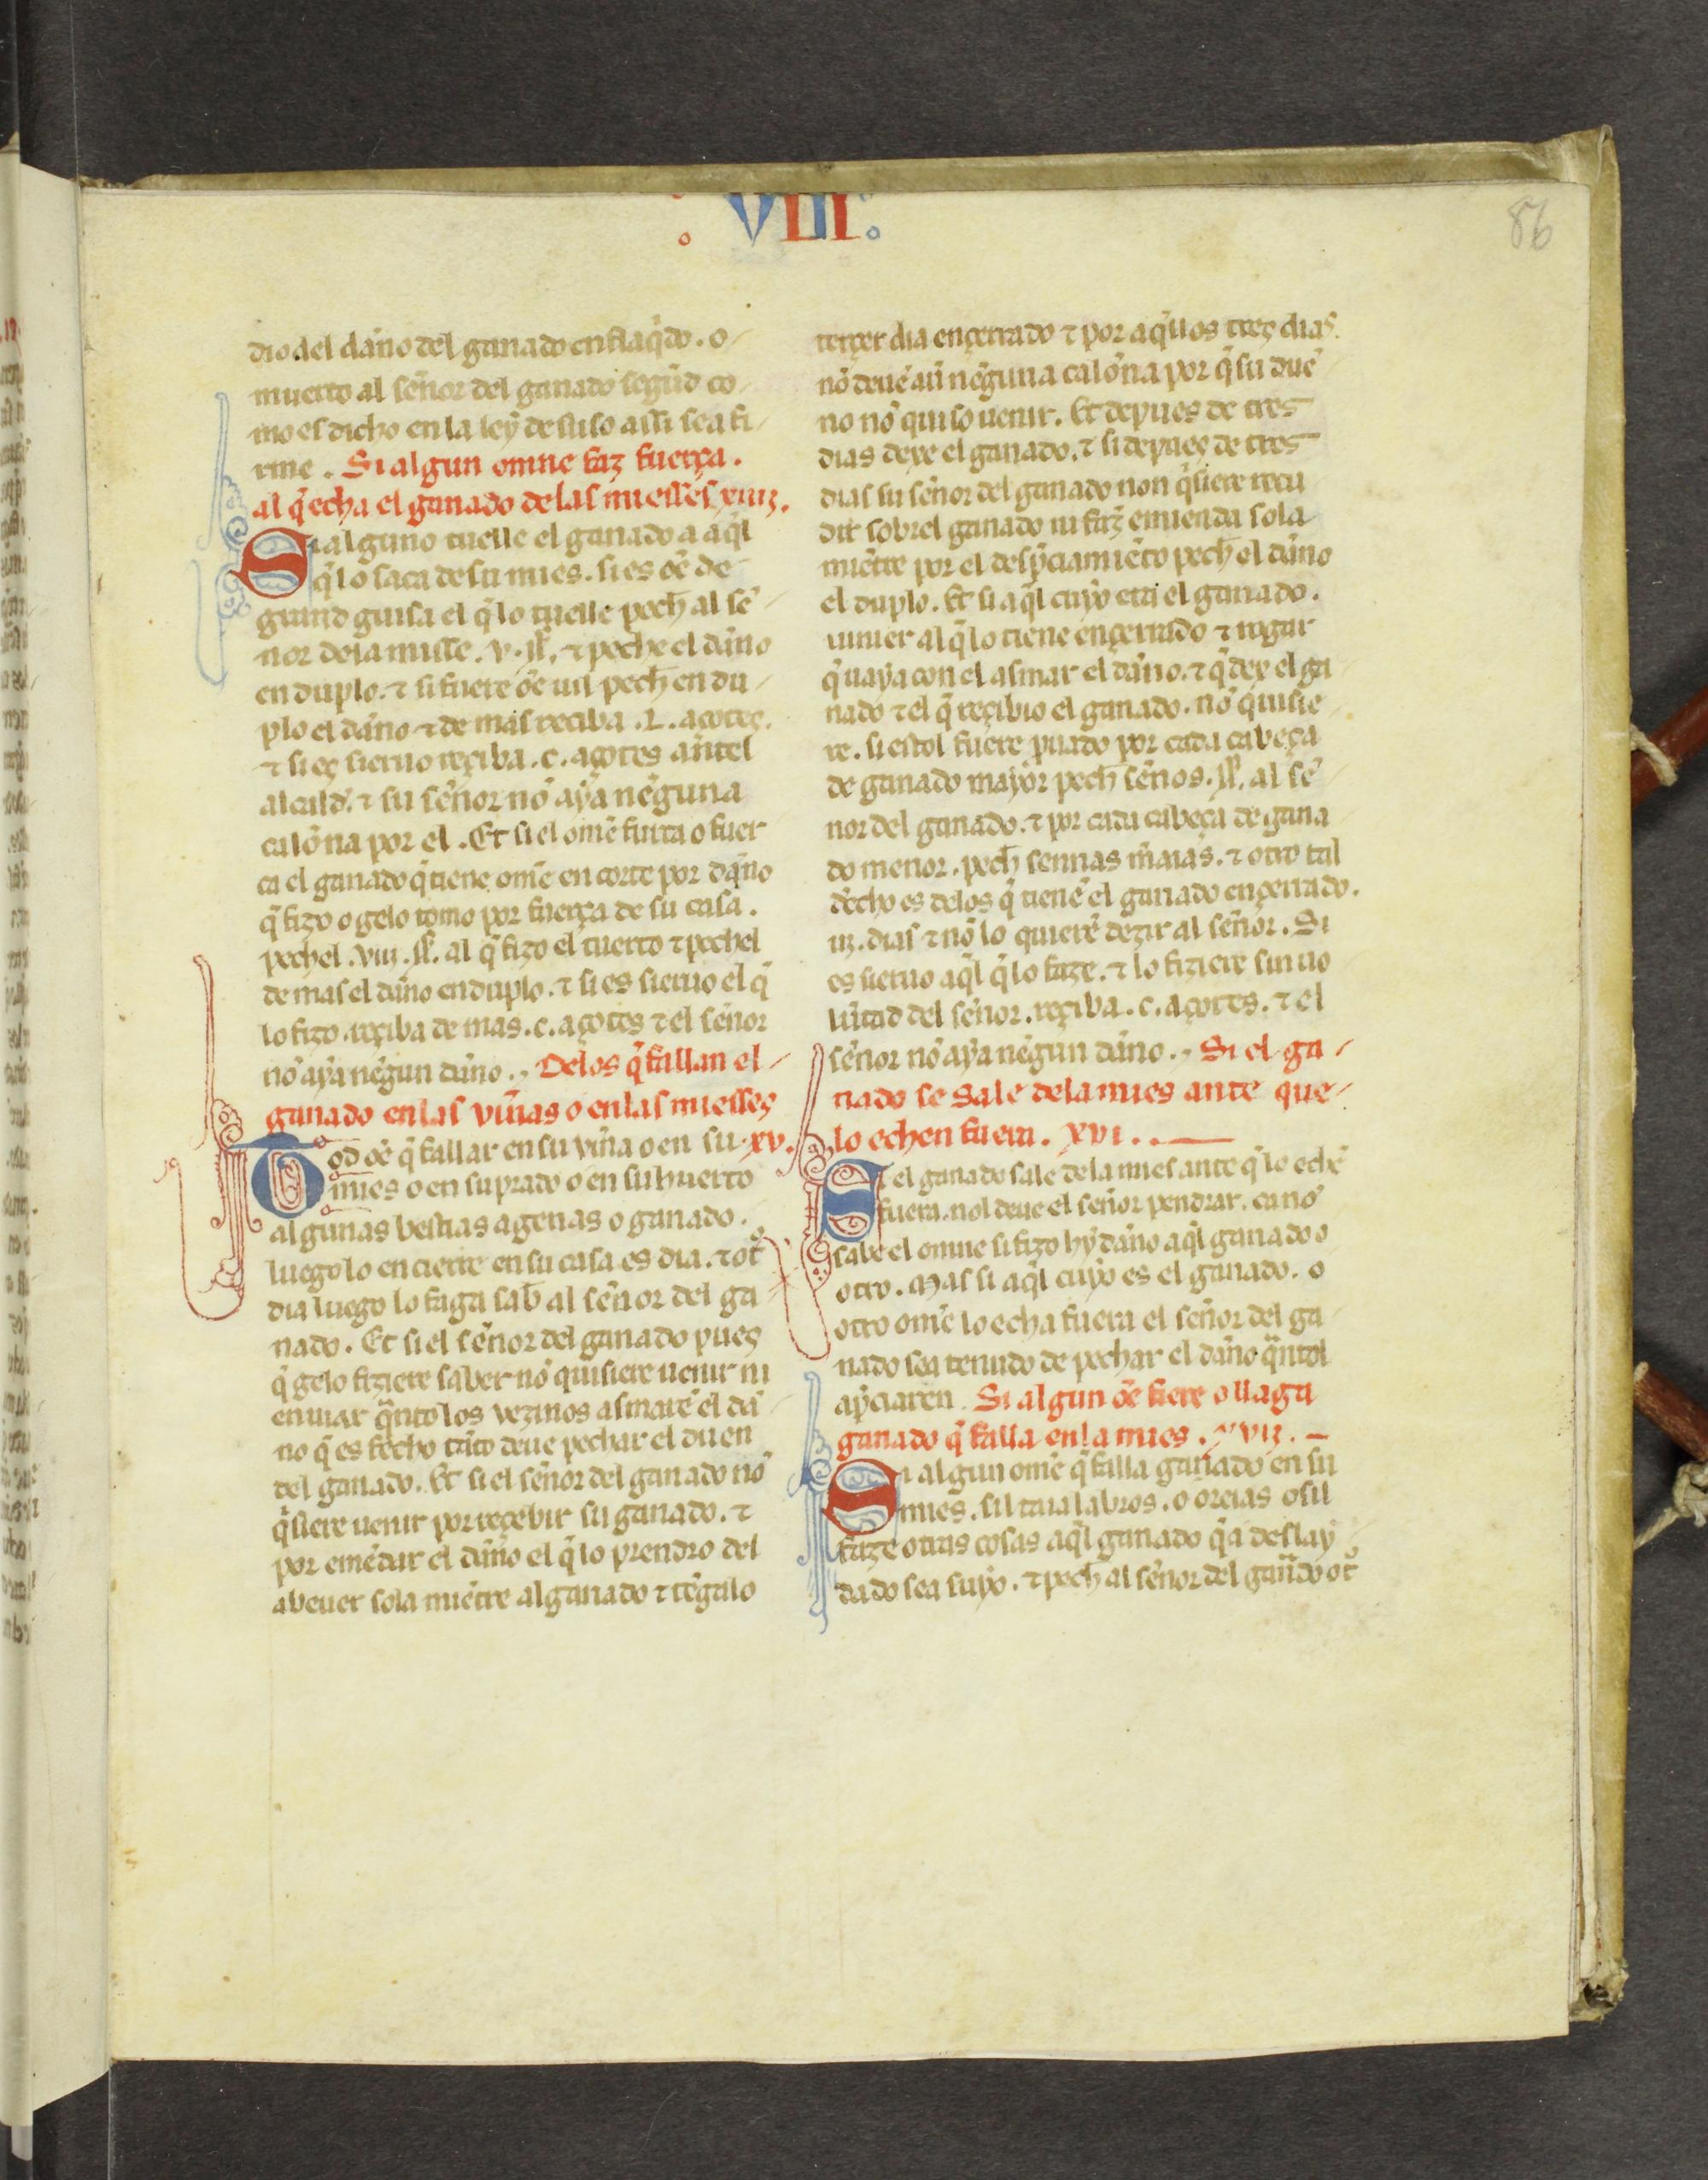 VIII
86
dio del dan̄o del ganado enflaq̄do. o
muerto al sen̄or del ganado segūd co
mo es dicho en la ley de suso assi sea fi
rme. Si algun omne faz fuerça.
al q̄ echa el ganado de las miesses xiiij.
Si alguno tuelle el ganado a aq̄l
q̄ lo saca de su mies. si es oē de
grand guisa el q̄ lo tuelle pech̄ al sē
nor dela miesse. v. ss̄. ⁊ peche el dan̄o
en duplo. ⁊ si fuere oē uil pech̄ en du
plo el dan̄o ⁊ de mas reciba .L. açotes.
⁊ si es sieruo reçiba .c. açotes antel
alcald̄. ⁊ su sen̄or nō aya nēguna
calon̄a por el. Et si el omē furta o fuer
ça el ganado q̄ tiene omē en corte por dan̄o
q̄ fizo o gelo tomo por fuerça de su casa.
pechel .viij. ss̄. al q̄ fizo el tuerto ⁊ pechel
de mas el dan̄o en duplo. ⁊ si es sieruo el q̄
lo fizo. reçiba de mas .c. açotes ⁊ el sen̄or
nō aya nēgun dan̄o. Delos q̄ fallan el
ganado en las vin̄as o en las miesses
Tod oē q̄ fallar en su vin̄a o en su xv.
mies o en su prado o en su huerto
algunas bestias agenas o ganado.
luego lo en cierre en su casa es dia. ⁊ ot̄
dia luego lo faga sab̄ al sen̄or del ga
nado. Et si el sen̄or del ganado pues
q̄ gelo fiziere saber nō quisiere uenir ni
enuiar q̄nto los vezinos asmarē el dā
no q̄ es fecho tāto deue pechar el duen̄
del ganado. Et si el sen̄or del ganado nō
q̄siere uenir por reçebir su ganado. ⁊
por emēdar el dan̄o el q̄ lo prendro del
a beuer sola miētre al ganado ⁊ tēgalo
terçer dia ençerrado ⁊ por aq̄llos tres dias
nō deuē aū nēguna calon̄a por q̄ su duē
no nō quiso uenir. Et depues de tres
dias dexe el ganado. ⁊ si depues de tres
dias su sen̄or del ganado non q̄siere recu
dir sobrel ganado ni faz̄ emienda sola
miētre por el desp̄ciamiēto pech̄ el dan̄o
el duplo. Et si aq̄l cuyo era el ganado.
uinier al q̄ lo tiene ençerrado ⁊ rogar
q̄ uaya con el asmar el dan̄o. ⁊ q̄ dexe el ga
nado ⁊ el q̄ reçibio el ganado. nō quisie
re. si estol fuere puado por cada cabeça
de ganado mayor pech̄ sen̄os. ss̄. al sē
nor del ganado. ⁊ por cada cabeça de gana
do menor. pech̄ sennas m̄aias. ⁊ otro tal
d̄echo es delos q̄ tienē el ganado ençerrado.
iij. dias ⁊ nō lo quierē dezir al sen̄or. Si
es sieruo aq̄l q̄ lo faze. ⁊ lo fiziere sin uo
lūtad del sen̄or. reçiba .c. açotes. ⁊ el
sen̄or nō aya nēgun dan̄o. Si el ga
nado se sale dela mies ante que
lo echen fuera. xvi.
Si el ganado sale dela mies ante q̄ lo echē
fuera. nol deue el sen̄or pendrar. ca nō
sabe el omne si fizo hy dan̄o aq̄l ganado o
otro. Mas si aq̄l cuyo es el ganado. o
otro omē lo echa fuera el sen̄or del ga
nado sea tenudo de pechar el dan̄o q̄ntol
ap̄ciaren. Si algun oē fiere o llaga
ganado q̄ falla en la mies. xvij.
Si algun omē q̄ falla ganado en su
mies. sil taia labros. o oreias o sil
faze otras cosas aq̄l ganado q̄ a deslay
dado sea suyo. ⁊ pech̄ al sen̄or del gan̄do ot̄